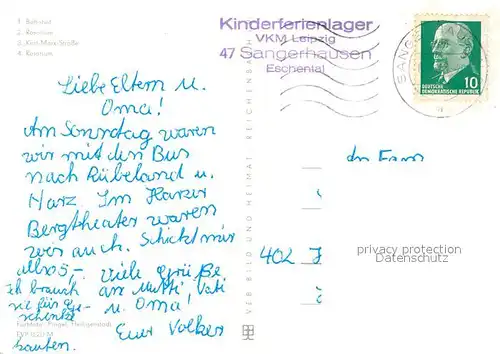 1. Bahnhof
2. Rosarium
3. Karl-Marx-Straße
4. Rosarium
Kinderferienlager
VKM Leipzig
47 Sangerhausen
Eschental
SANGERHAUS
10
DEUTSCHE
DEMOKRATISCHE REPUBLIK
Liebe Eltern u.
Oma!
Am Sonntag waren
wir mit den Bus
nach Rübeland u.
Harz. Im Harzer
Bergtheater waren
wir auch. Schickt mir
5,- viele Grüße
ich brauch an Mutti Vati
sie für Ge- u. Oma!
schenke
Euer Volker
kaufen.
VEB BILD UND HEIMAT REICHENBACH
An Fam
402
privacy protection
Datenschutz